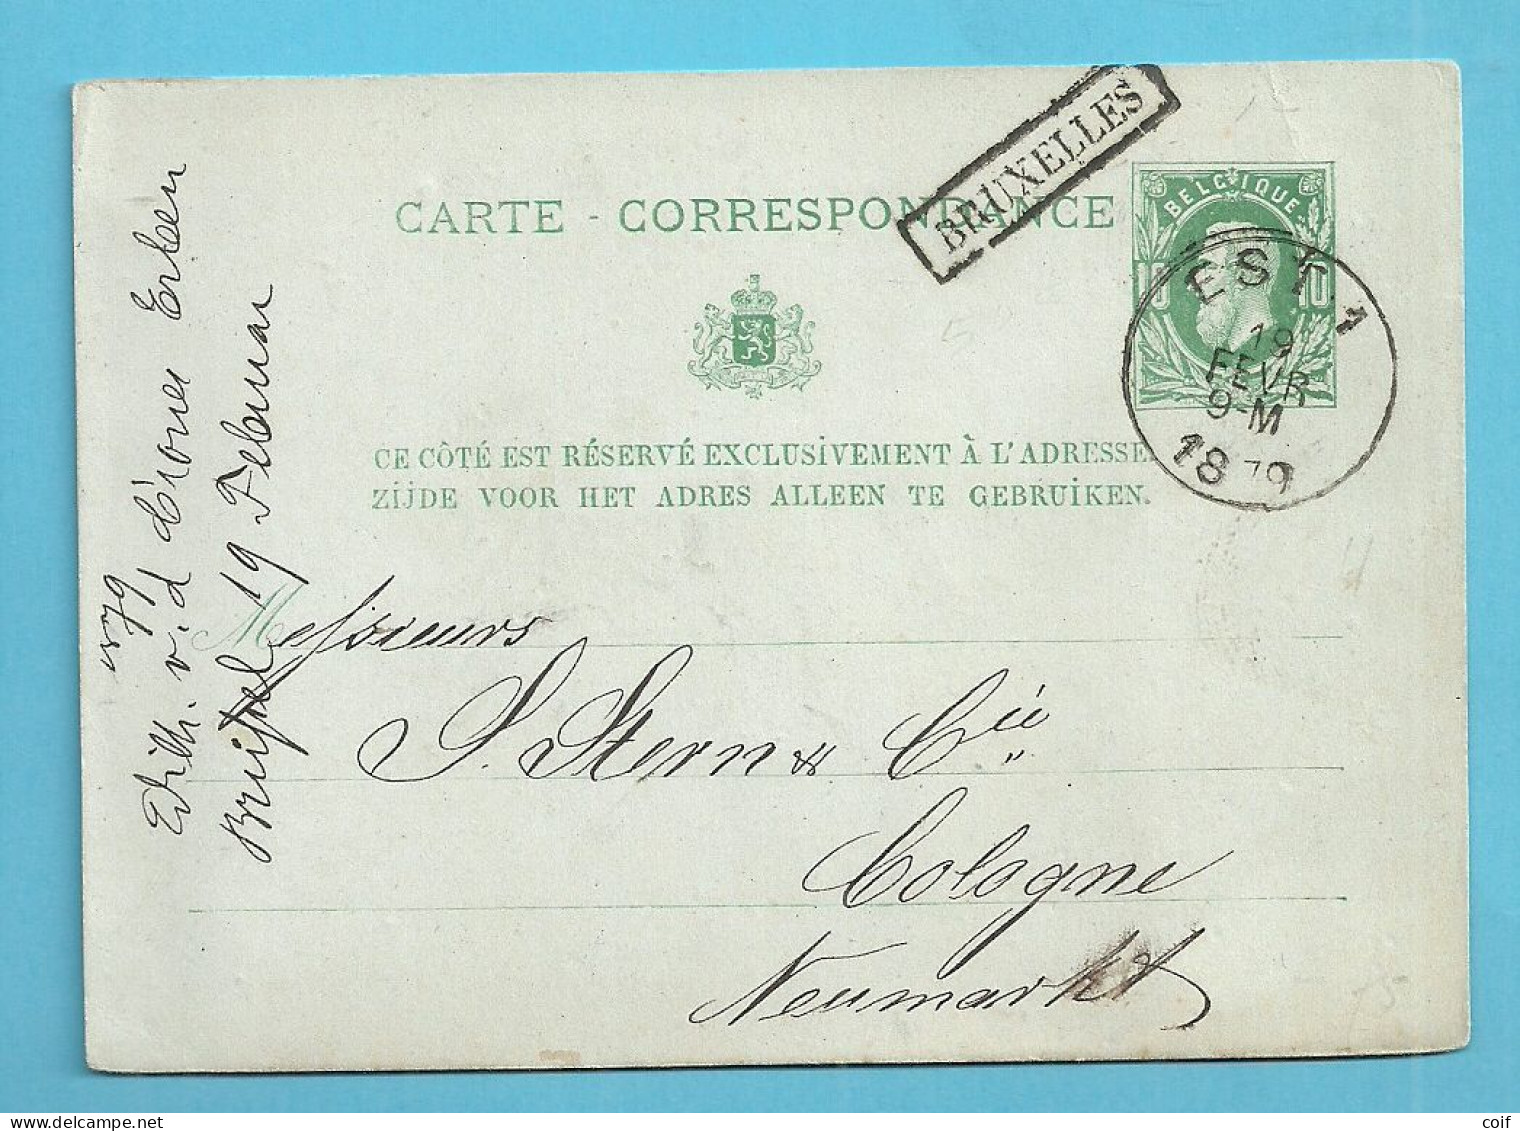 BRUXELLES
CARTE - CORRESPONDANCE
BELGIQUE
10 10
EST. 1
19
FEVR
9-M
1879
CE CÔTÉ EST RÉSERVÉ EXCLUSIVEMENT À L'ADRESSE
ZIJDE VOOR HET ADRES ALLEEN TE GEBRUIKEN.
Messieurs
S. Stern & Cie
Cologne
Neumarkt
Wilh. v. d. Erben
Brüssel 19 Februar
1879
delcampe.net
coif